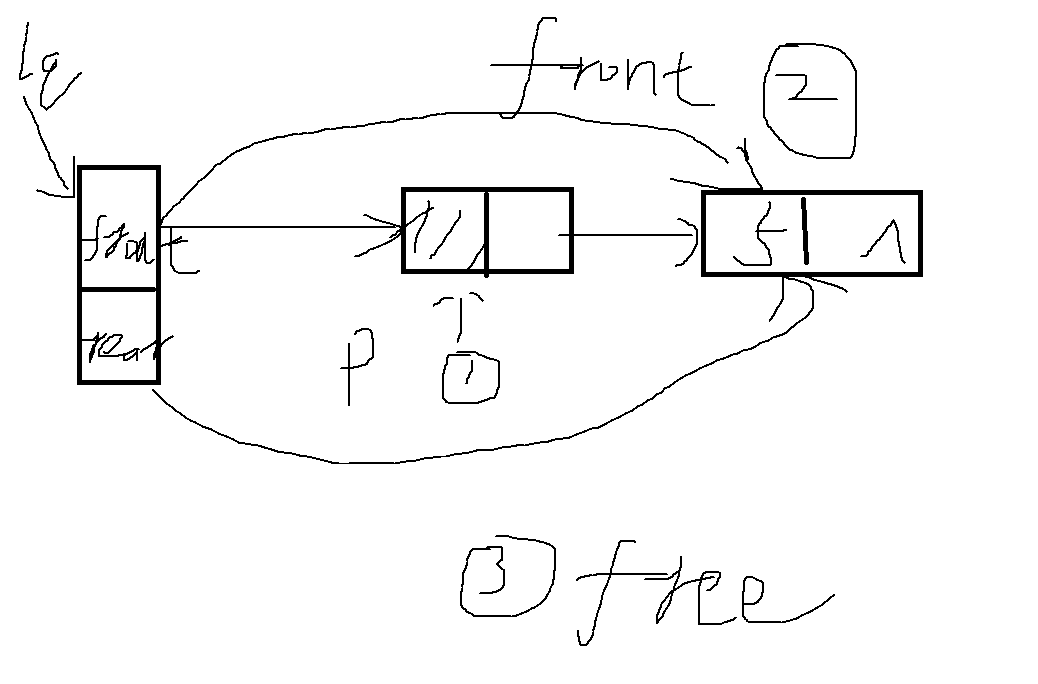 lq
front
2
front
rear
p
1
3 free